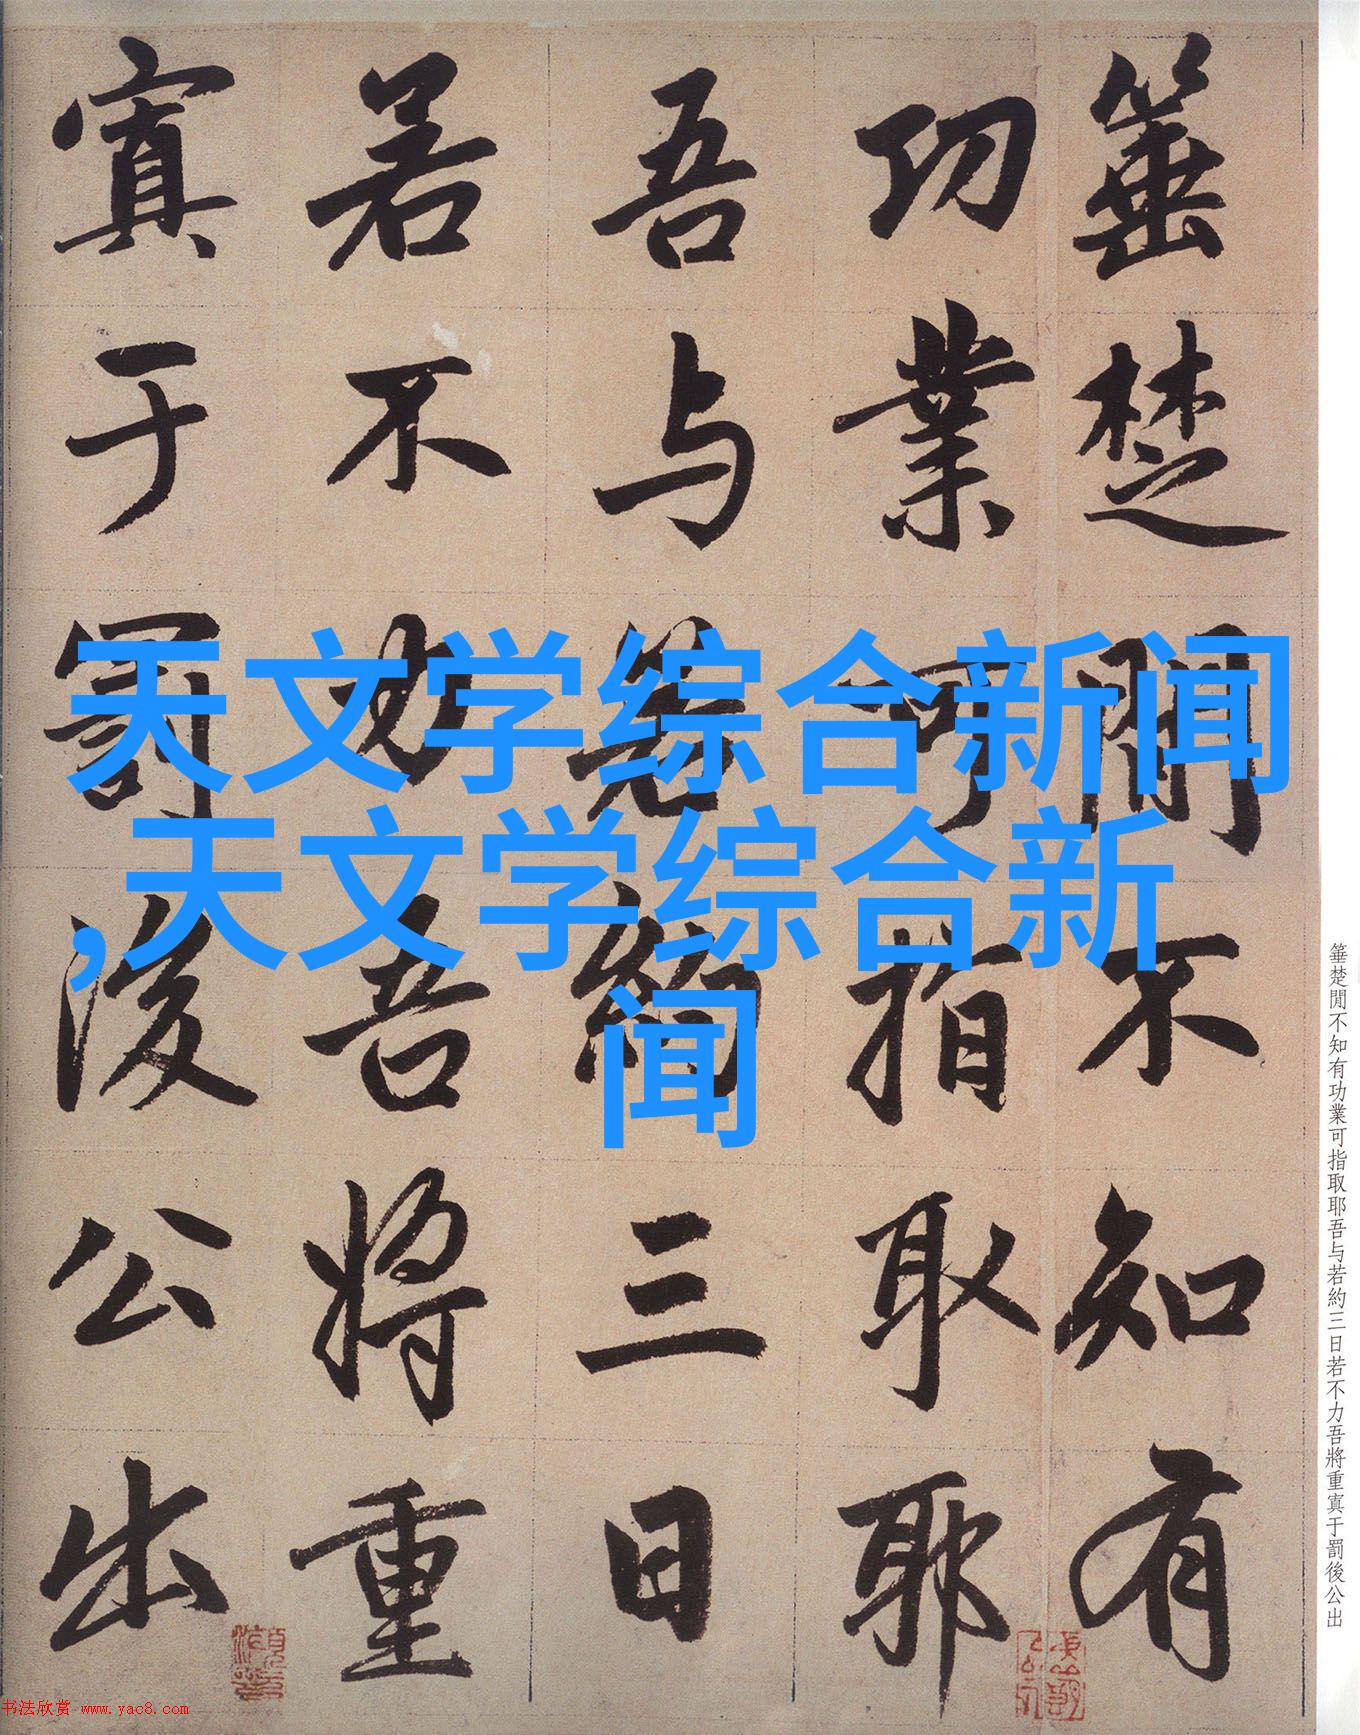 箠楚閒不知有
功業可指取耶
吾与若約三日
若不力吾將重
寘于罰後公出
天文学综合新闻
,天文学综合新
闻
箠楚閒不知有功業可指取耶吾与若約三日若不力吾將重寘于罰後公出
书法欣赏 www.yac8.com